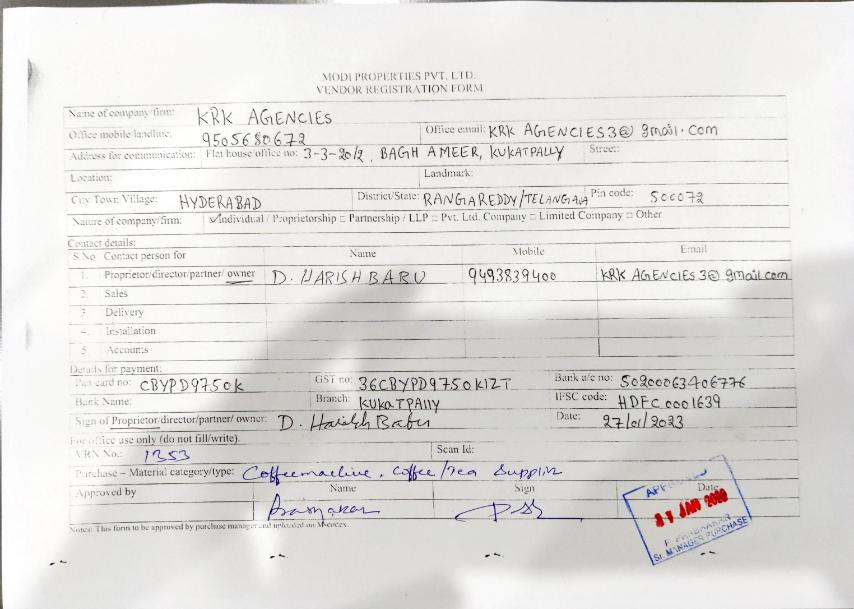 MODI PROPERTIES PVT. LTD.
VENDOR REGISTRATION FORM
Name of company/firm: KRK AGENCIES
Office mobile/landline: 9505680672 Office email: KRK AGENCIES3@gmail.com
Address for communication: Flat/house/office no: 3-3-20/2, BAGH AMEER, KUKATPALLY Street:
Location: Landmark:
City Town Village: HYDERABAD District/State: RANGAREDDY/TELANGANA Pin code: 500072
Nature of company/firm: ✓Individual / Proprietorship □ Partnership / LLP □ Pvt. Ltd. Company □ Limited Company □ Other
Contact details:
S No Contact person for Name Mobile Email
1. Proprietor/director/partner/ owner D. HARISH BABU 9493839400 KRK AGENCIES3@gmail.com
2. Sales
3 Delivery
4. Installation
5 Accounts
Details for payment:
Pan card no: CBYPD9750K GST no: 36CBYPD9750K1ZT Bank a/c no: 50200063406776
Bank Name: Branch: KUKATPAlly IFSC code: HDFC0001639
Sign of Proprietor/director/partner/ owner: D. Harish Babu Date: 27/01/2023
For office use only (do not fill/write).
VRN No.: 1353 Scan Id:
Purchase – Material category/type: Coffeemachine, Coffee/Tea
Approved by Name Sign Date
APPROVED
JAN
P. PRABHAKAR
Sr. MANAGER PURCHASE
Notes: This form to be approved by purchase manager and uploaded on M-codex.